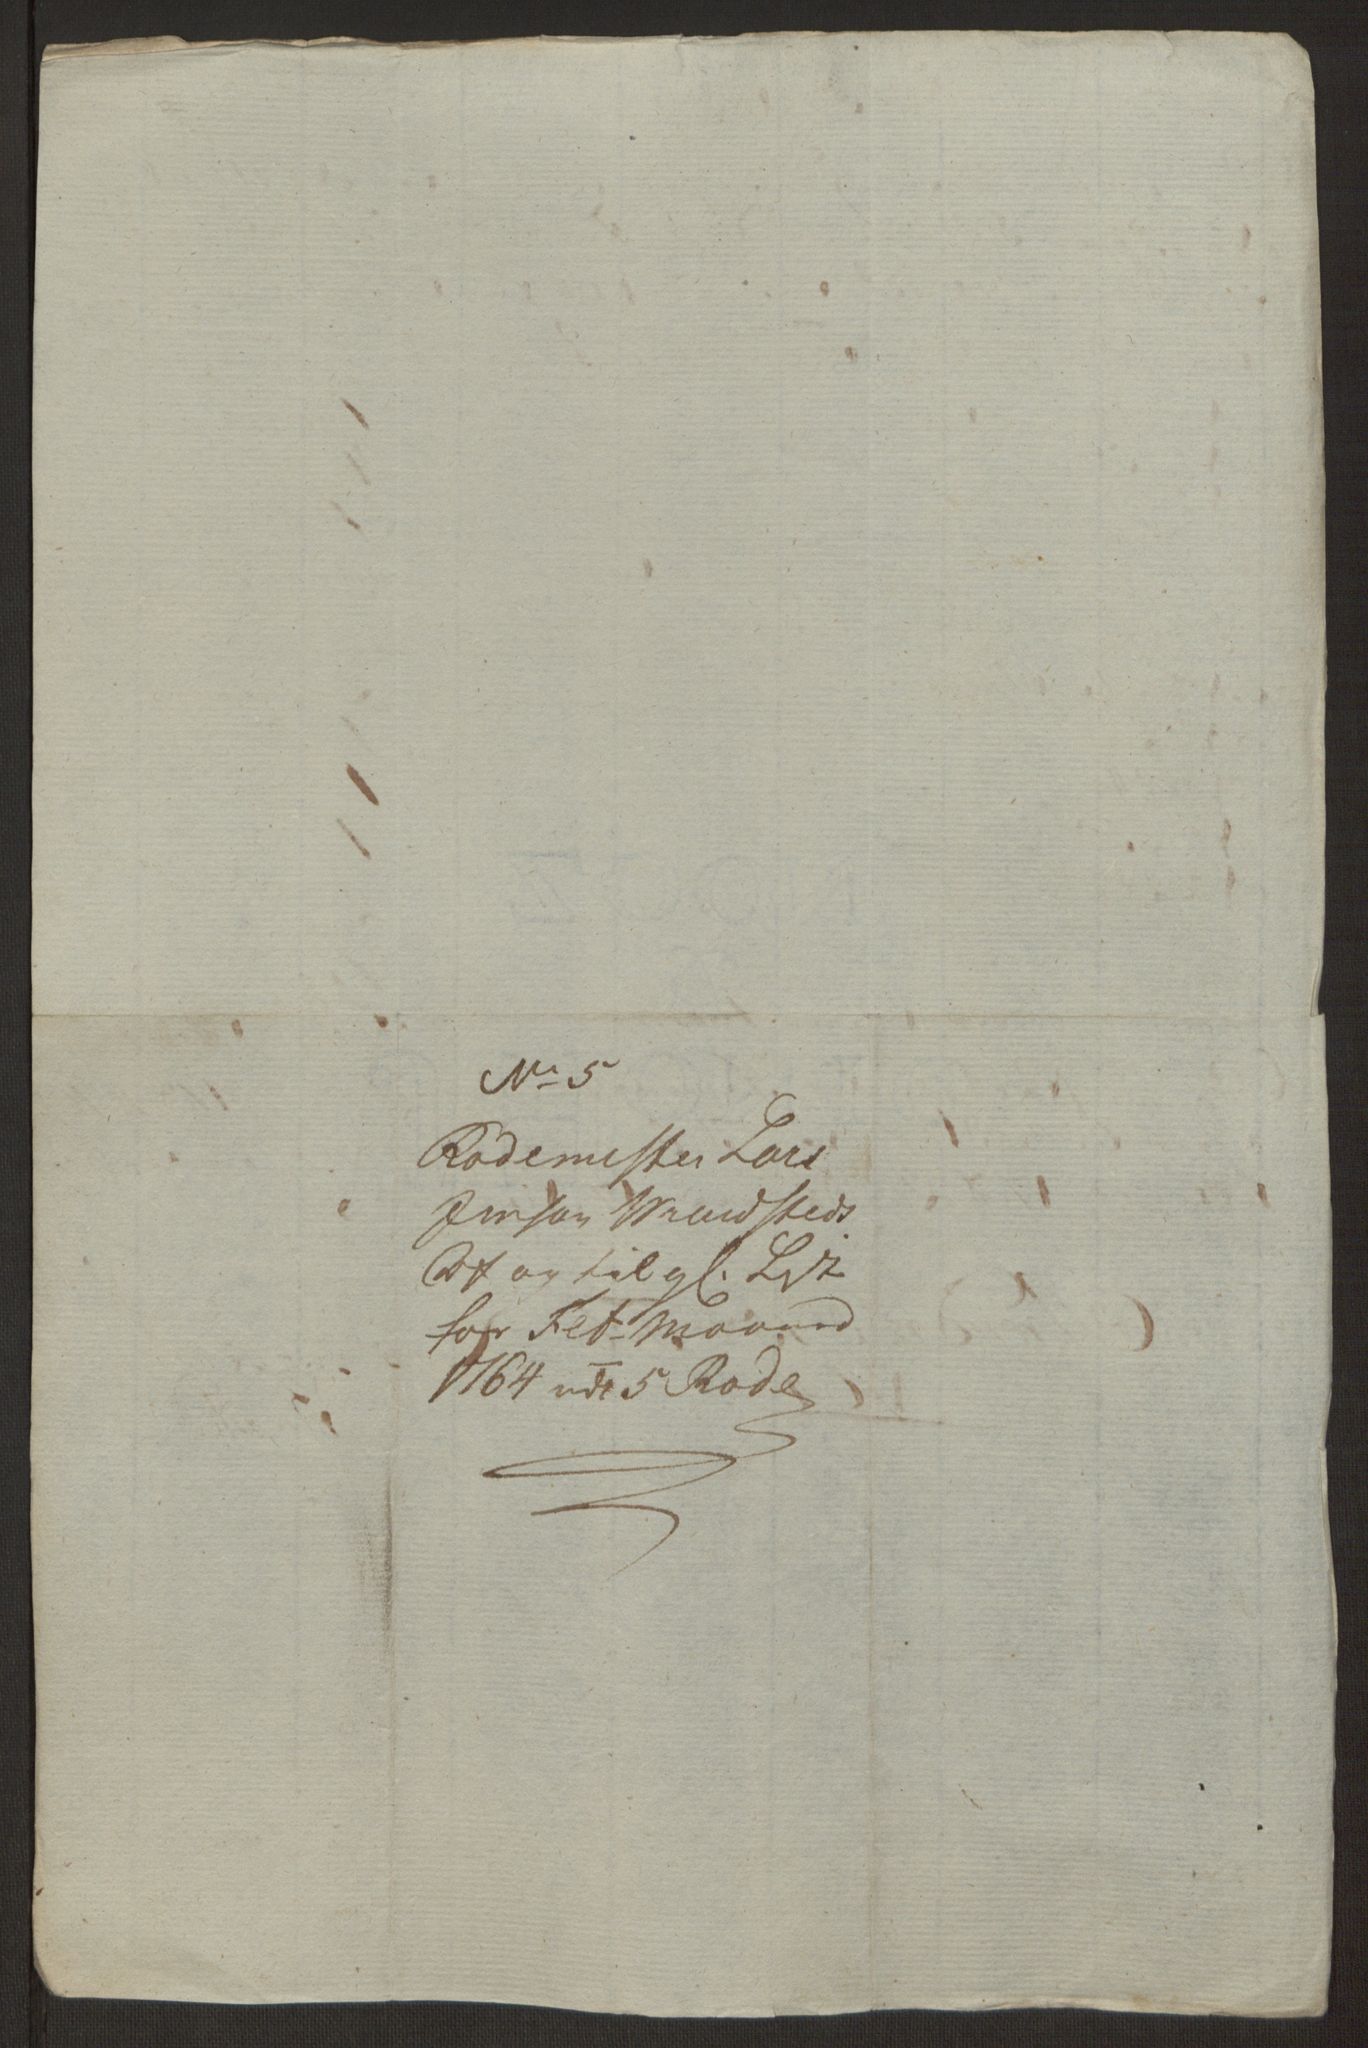 No 5
Rodemester Lars
Jenson Wrandsteds
Af og til gl. List
for Feb. Maaned
1764 udi 5 Rode